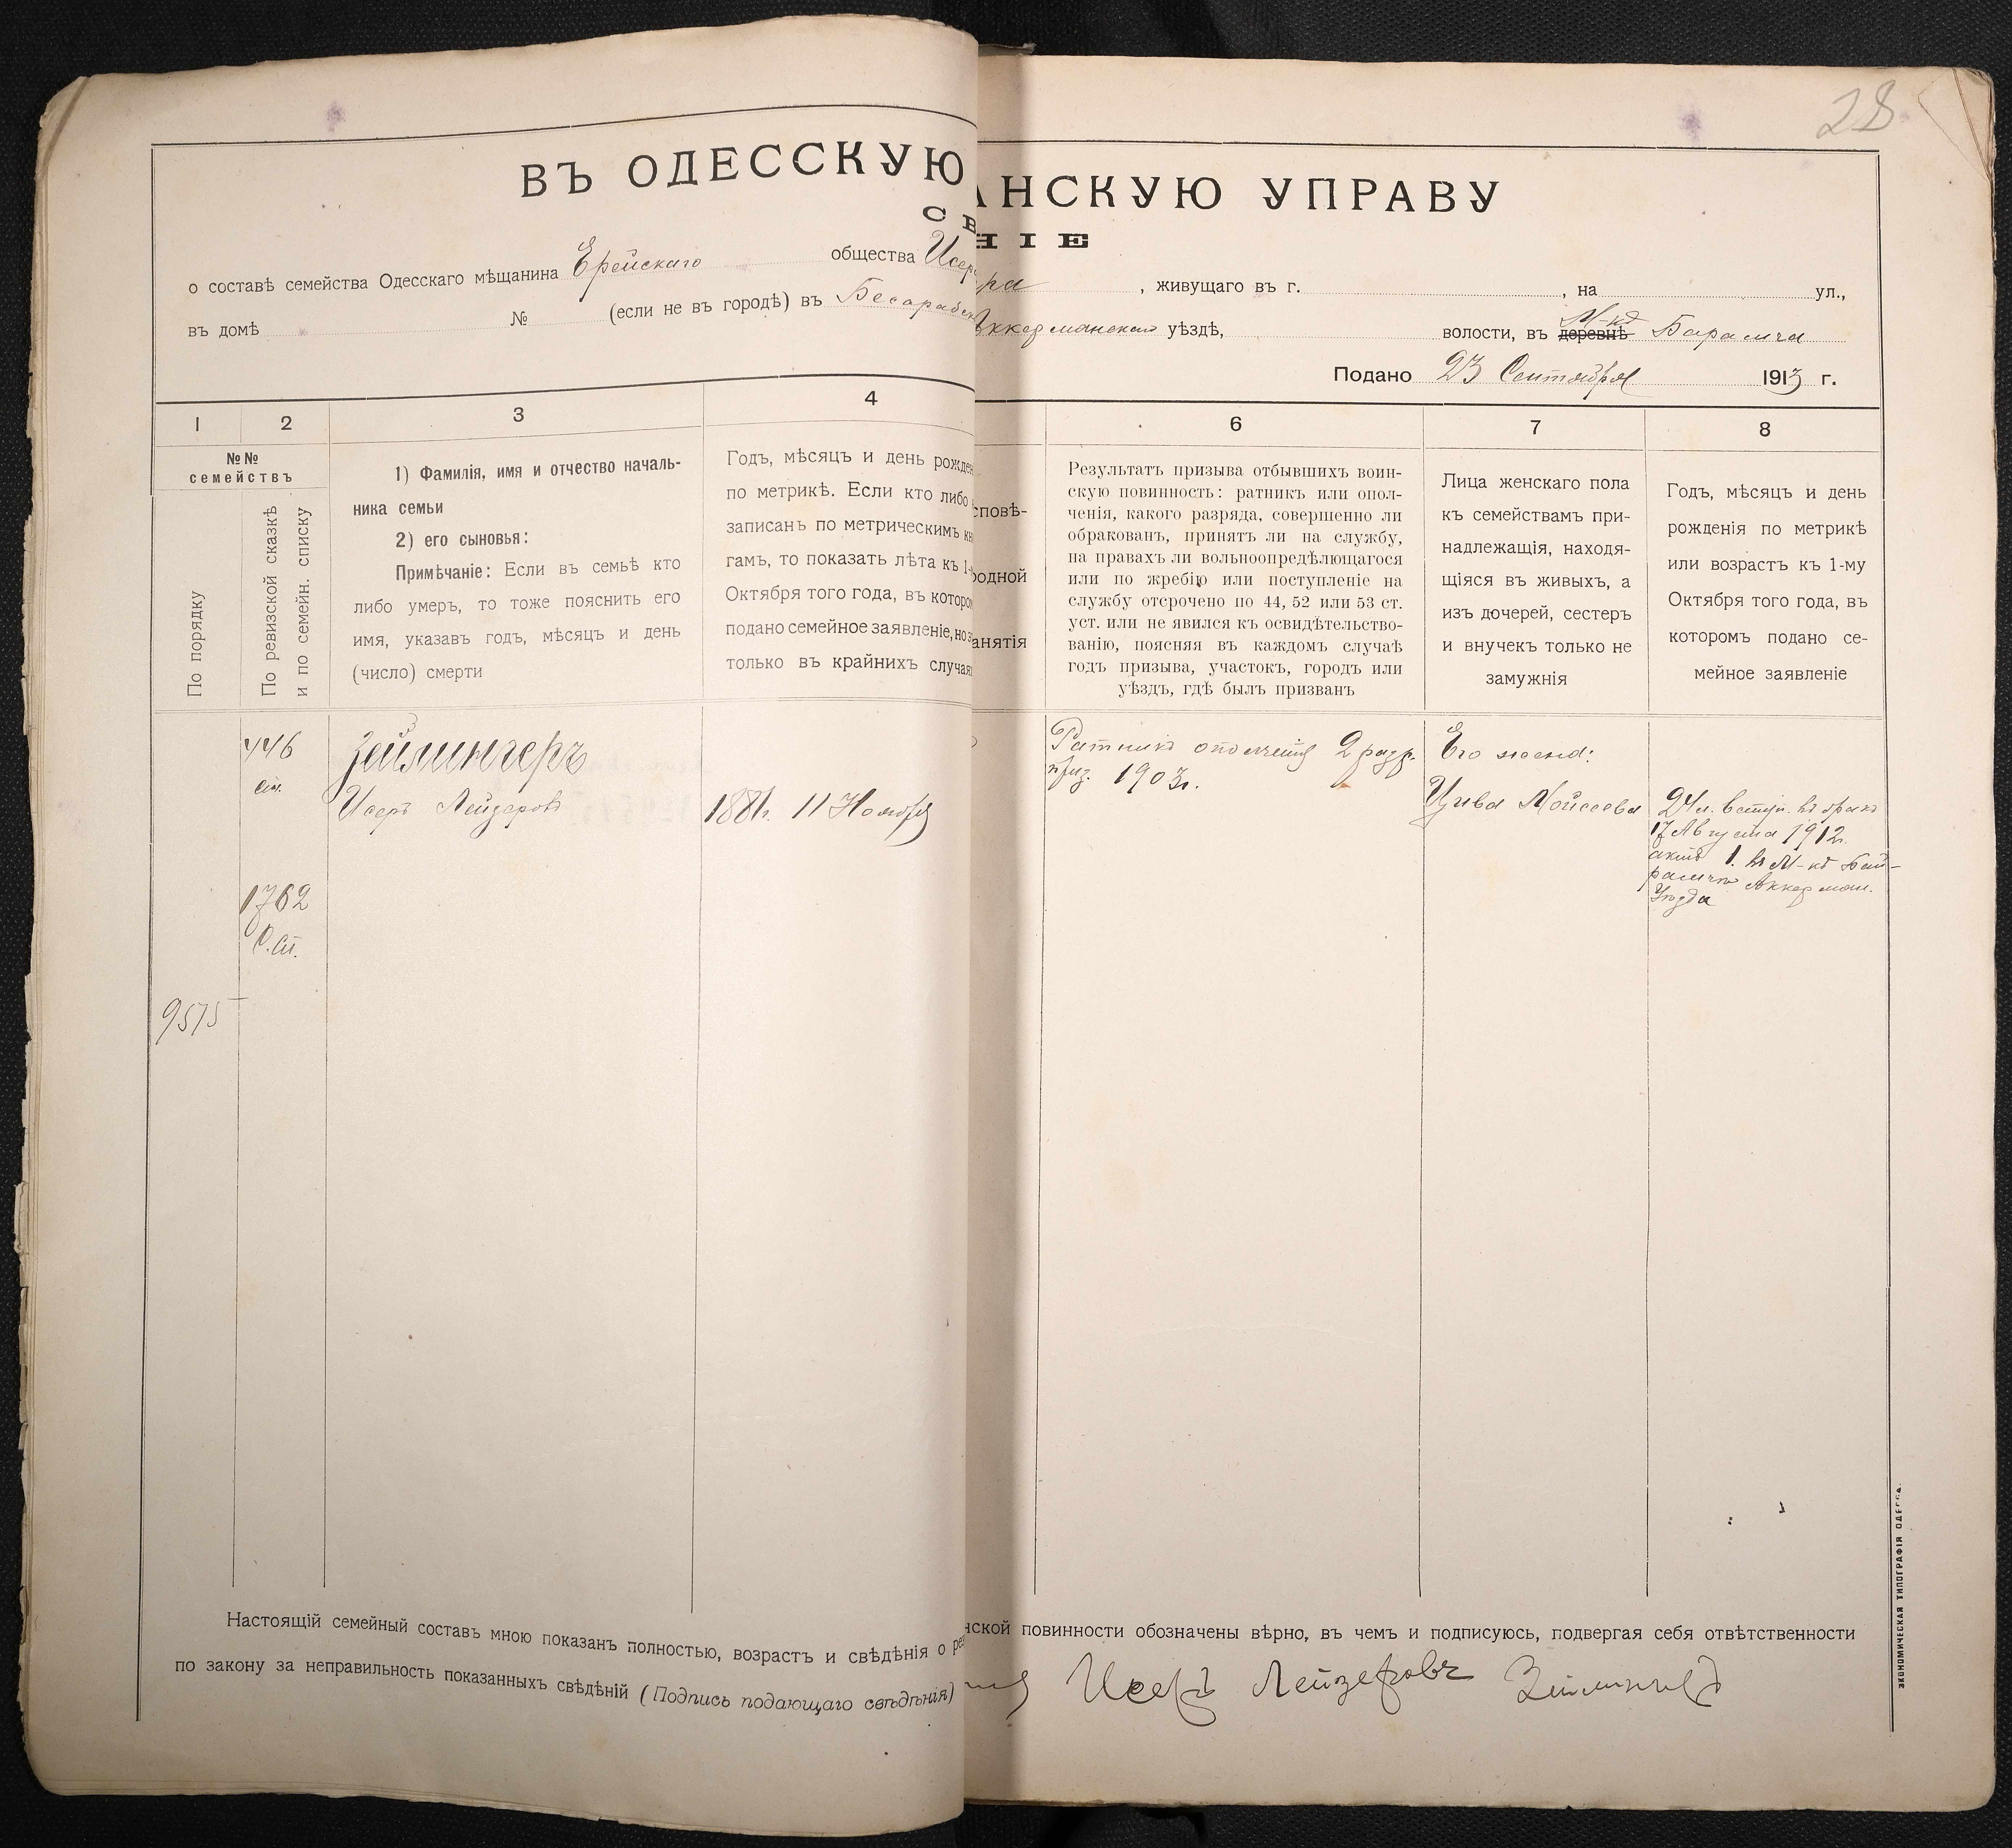 28
ВЪ ОДЕССКУЮ АНСКУЮ УПРАВУ
СВ НІЕ
о составѣ семейства Одесскаго мѣщанина Ерейскаго общества Исер ра , живущаго въ г. , на ул.,
въ домѣ № (если не въ городѣ) въ Бесарабск Аккерманскаго уѣздѣ, волости, въ деревнѣ М-кѣ Барамча
Подано 23 Сентября 1913 г.
1 2 3 4 6 7 8
№№
семействъ
По порядку
По ревизской сказкѣ
и по семейн. списку
1) Фамилія, имя и отчество началь-
ника семьи
2) его сыновья:
Примѣчаніе: Если въ семьѣ кто
либо умеръ, то тоже пояснить его
имя, указавъ годъ, мѣсяцъ и день
(число) смерти
Годъ, мѣсяцъ и день рожде
по метрикѣ. Если кто либо
записанъ по метрическимъ кн
гамъ, то показать лѣта къ 1-
Октября того года, въ которо
подано семейное заявленіе, но э
только въ крайнихъ случая
сповѣ-
родной
анятія
Результатъ призыва отбывшихъ воин-
скую повинность: ратникъ или опол-
ченія, какого разряда, совершенно ли
обракованъ, принятъ ли на службу,
на правахъ ли вольноопредѣляющагося
или по жребію или поступленіе на
службу отсрочено по 44, 52 или 53 ст.
уст. или не явился къ освидѣтельство-
ванію, поясняя въ каждомъ случаѣ
годъ призыва, участокъ, городъ или
уѣздъ, гдѣ былъ призванъ
Лица женскаго пола
къ семействамъ при-
надлежащія, находя-
щіяся въ живыхъ, а
изъ дочерей, сестеръ
и внучекъ только не
замужнія
Годъ, мѣсяцъ и день
рожденія по метрикѣ
или возрастъ къ 1-му
Октября того года, въ
которомъ подано се-
мейное заявленіе
446
1762
9575
Зейлингеръ
Исеръ Лейзеровъ
1881г. 11 Ноября
Ратникъ ополченія 2 разр.
приз. 1903г.
Его жена:
Цива Мойсеева
24л. вступ. въ бракъ
17 Августа 1912г.
актъ 1. въ М-кѣ Бай-
рамча Аккерман.
Уѣзда
Настоящій семейный составъ мною показанъ полностью, возрастъ и свѣдѣнія о ре нской повинности обозначены вѣрно, въ чемъ и подписуюсь, подвергая себя отвѣтственности
по закону за неправильность показанныхъ свѣдѣній (Подпись подающаго свѣдѣнія) Исеръ Лейзеровъ Зейлингеръ
ЭКОНОМИЧЕСКАЯ ТИПОГРАФІЯ ОДЕССА.